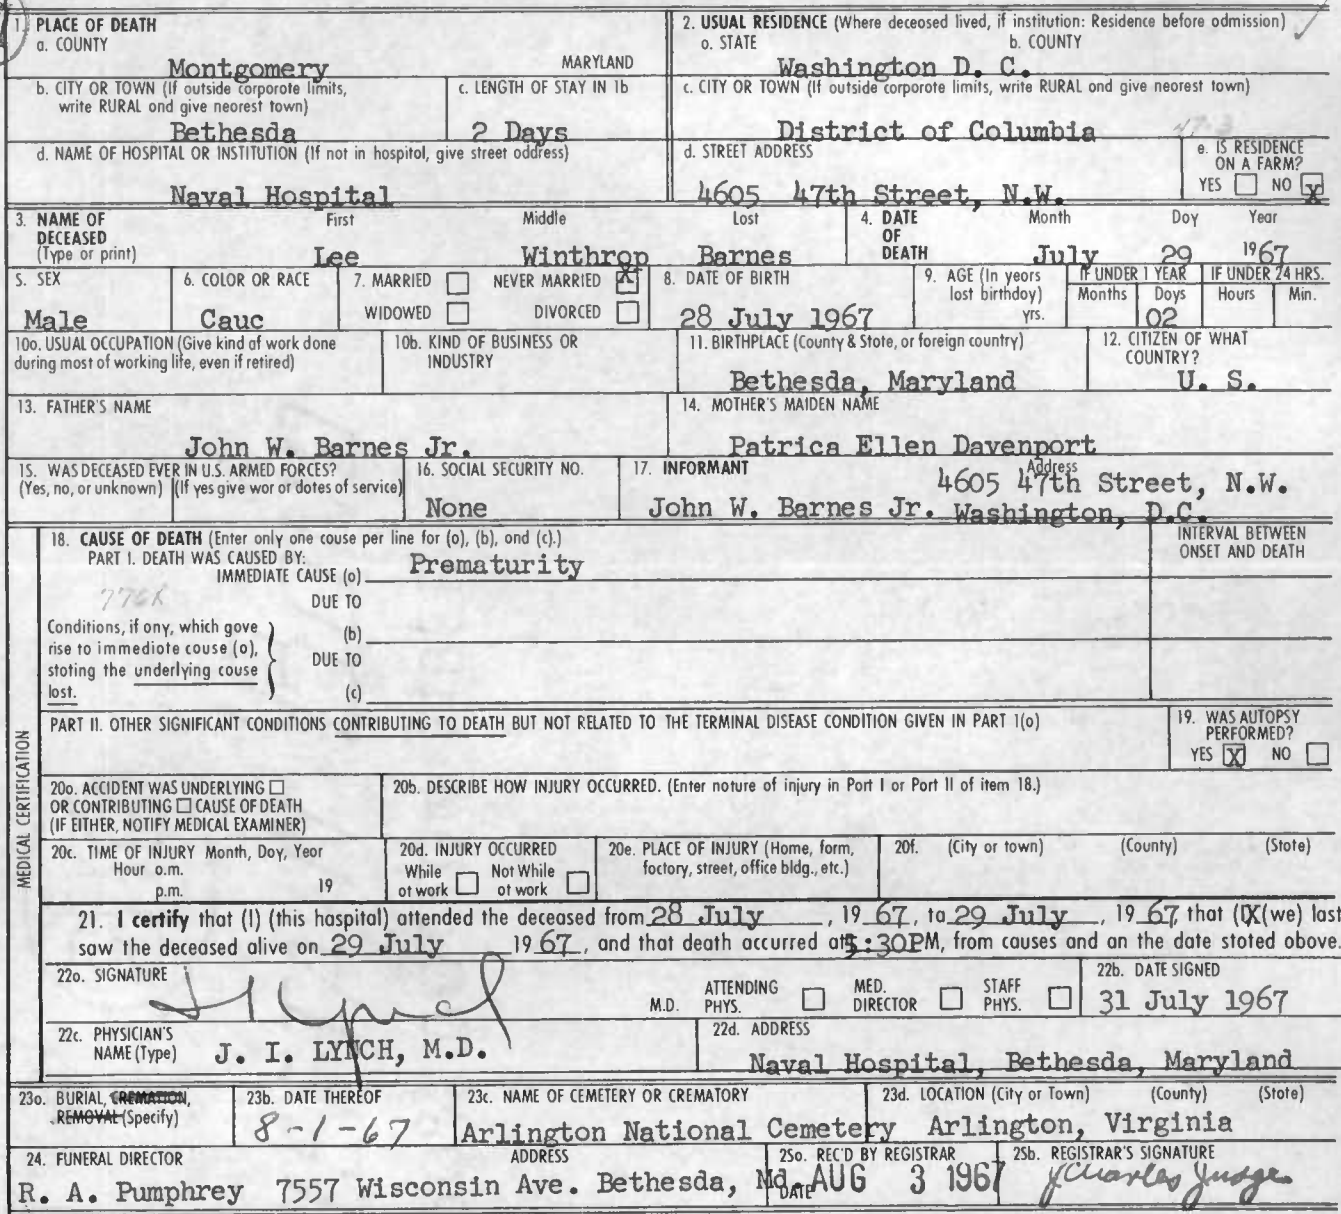 1. PLACE OF DEATH
a. COUNTY
Montgomery MARYLAND
2. USUAL RESIDENCE (Where deceased lived, if institution: Residence before odmission)
o. STATE b. COUNTY
Washington D. C.
b. CITY OR TOWN (If outside corporote limits,
write RURAL ond give neorest town)
Bethesda
c. LENGTH OF STAY IN 1b
2 Days
c. CITY OR TOWN (If outside corporote limits, write RURAL ond give neorest town)
District of Columbia
d. NAME OF HOSPITAL OR INSTITUTION (If not in hospitol, give street oddress)
Naval Hospital
d. STREET ADDRESS
4605 47th Street, N.W.
47-3
e. IS RESIDENCE
ON A FARM?
YES NO X
3. NAME OF
DECEASED
(Type or print)
First Middle Lost
Lee Winthrop Barnes
4. DATE
OF
DEATH
Month Doy Yeor
July 29 1967
5. SEX
Male
6. COLOR OR RACE
Cauc
7. MARRIED NEVER MARRIED X
WIDOWED DIVORCED
8. DATE OF BIRTH
28 July 1967
9. AGE (In yeors
lost birthdoy)
yrs.
IF UNDER 1 YEAR
Months Days
02
IF UNDER 24 HRS.
Hours Min.
10o. USUAL OCCUPATION (Give kind of work done
during most of working life, even if retired)
10b. KIND OF BUSINESS OR
INDUSTRY
11. BIRTHPLACE (County & Stote, or foreign country)
Bethesda, Maryland
12. CITIZEN OF WHAT
COUNTRY?
U. S.
13. FATHER'S NAME
John W. Barnes Jr.
14. MOTHER'S MAIDEN NAME
Patrica Ellen Davenport
15. WAS DECEASED EVER IN U.S. ARMED FORCES?
(Yes, no, or unknown) (If yes give wor or dotes of service)
16. SOCIAL SECURITY NO.
None
17. INFORMANT Address
4605 47th Street, N.W.
John W. Barnes Jr. Washington, D.C.
18. CAUSE OF DEATH (Enter only one couse per line for (o), (b), ond (c).)
PART I. DEATH WAS CAUSED BY:
IMMEDIATE CAUSE (o) Prematurity
INTERVAL BETWEEN
ONSET AND DEATH
776X
DUE TO
Conditions, if ony, which gove
rise to immediote couse (o),
stoting the underlying couse
lost.
(b)
DUE TO
(c)
PART II. OTHER SIGNIFICANT CONDITIONS CONTRIBUTING TO DEATH BUT NOT RELATED TO THE TERMINAL DISEASE CONDITION GIVEN IN PART I(o)
19. WAS AUTOPSY
PERFORMED?
YES X NO
MEDICAL CERTIFICATION
20o. ACCIDENT WAS UNDERLYING
OR CONTRIBUTING CAUSE OF DEATH
(IF EITHER, NOTIFY MEDICAL EXAMINER)
20b. DESCRIBE HOW INJURY OCCURRED. (Enter noture of injury in Port I or Port II of item 18.)
20c. TIME OF INJURY Month, Doy, Year
Hour o.m.
p.m. 19
20d. INJURY OCCURRED
While Not While
ot work ot work
20e. PLACE OF INJURY (Home, form,
foctory, street, office bldg., etc.)
20f. (City or town) (County) (Stote)
21. I certify that (I) (this hospital) attended the deceased from 28 July, 19 67, to 29 July, 19 67, that (IX(we) last
saw the deceased alive on 29 July 19 67, and that death accurred at 5:30PM, from causes and an the date stoted obove.
22o. SIGNATURE
J Lynch
M.D. ATTENDING
PHYS.
MED.
DIRECTOR
STAFF
PHYS.
22b. DATE SIGNED
31 July 1967
22c. PHYSICIAN'S
NAME (Type) J. I. LYNCH, M.D.
22d. ADDRESS
Naval Hospital, Bethesda, Maryland
23o. BURIAL, CREMATION,
REMOVAL (Specify)
23b. DATE THEREOF
8-1-67
23c. NAME OF CEMETERY OR CREMATORY
Arlington National Cemetery
23d. LOCATION (City or Town) (County) (Stote)
Arlington, Virginia
24. FUNERAL DIRECTOR ADDRESS
R. A. Pumphrey 7557 Wisconsin Ave. Bethesda, Md.
25o. REC'D BY REGISTRAR
DATE AUG 3 1967
25b. REGISTRAR'S SIGNATURE
J Charles Judge